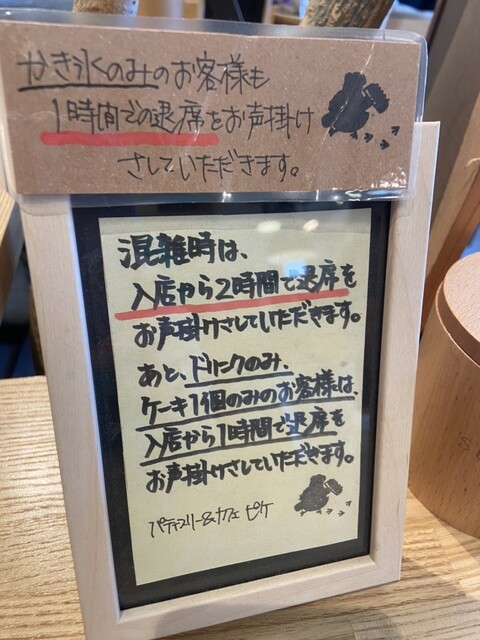 かき氷のみのお客様も
1時間での退席をお声掛け
させていただきます。
混雑時は、
入店から2時間で退席を
お声掛けさせていただきます。
あと、ドリンクのみ、
ケーキ1個のみのお客様は、
入店から1時間で退席を
お声掛けさせていただきます。
パティスリー&カフェ ピケ